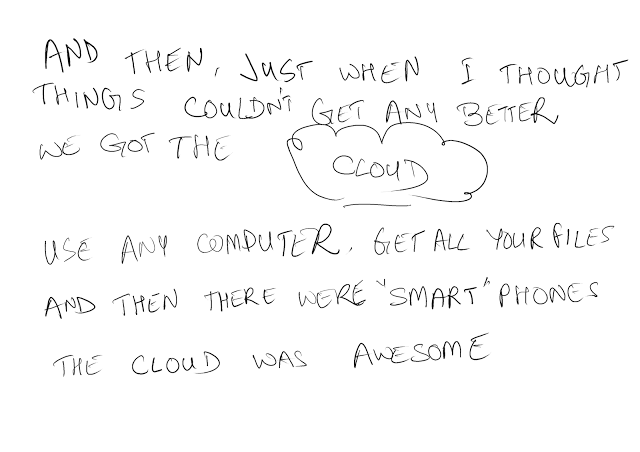 AND THEN, JUST WHEN I THOUGHT
THINGS COULDN'T GET ANY BETTER
WE GOT THE CLOUD
USE ANY COMPUTER. GET ALL YOUR FILES
AND THEN THERE WERE "SMART" PHONES
THE CLOUD WAS AWESOME